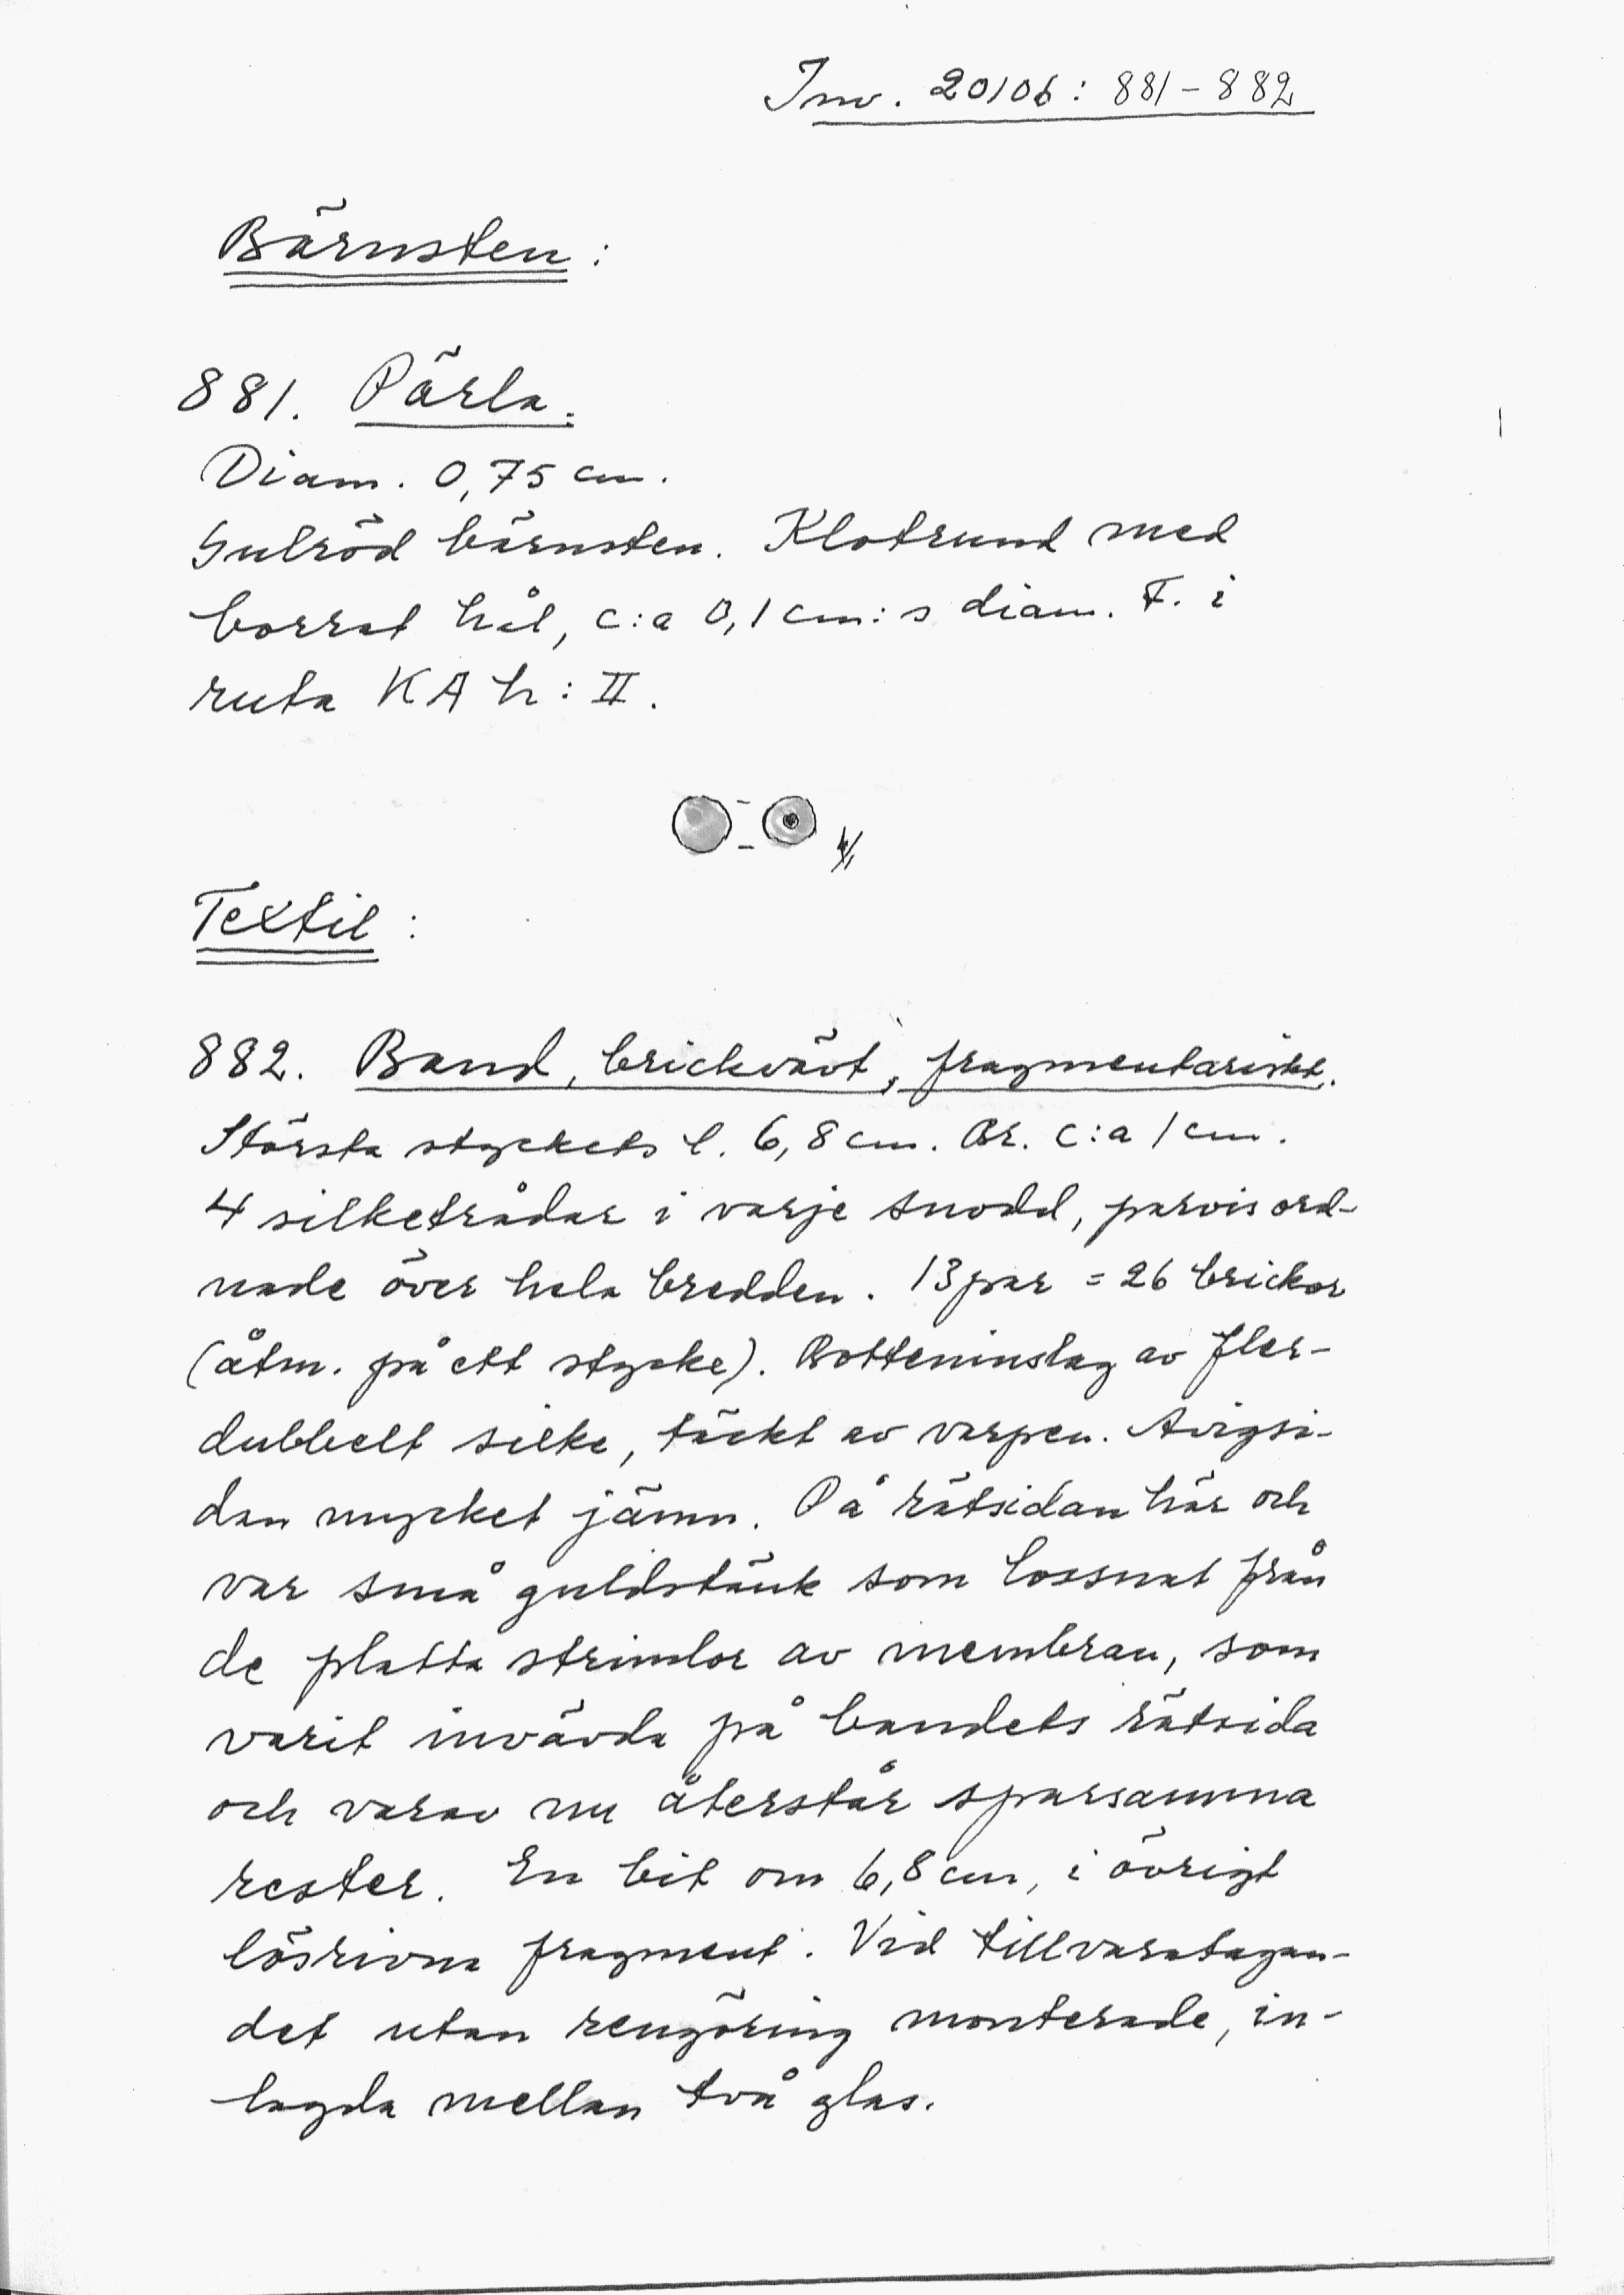 Inv. 20106: 881-882
Bärnsten:
881. Pärla.
Diam. 0,75 cm.
Gulröd bärnsten. Klotrund med
borrat hål, c:a 0,1 cm:s diam. F. i
ruta KA h: II.
Textil:
882. Band, brickvävt, fragmentariskt.
Största styckets l. 6,8 cm. Br. c:a 1 cm.
4 silketrådar i varje snodd, parvis ord-
nade över hela bredden. 13 par = 26 brickor
(åtm. på ett stycke). Botteninslag av fler-
dubbelt silke, täckt av varpen. Avigsi-
dan mycket jämn. På rätsidan här och
var små guldstänk som lossnat från
de platta strimlor av membran, som
varit invävda på bandets rätsida
och varav nu återstår sparsamma
rester. En bit om 6,8 cm, i övrigt
lösrivna fragment. Vid tillvaratagan-
det utan rengöring monterade, in-
lagda mellan två glas.